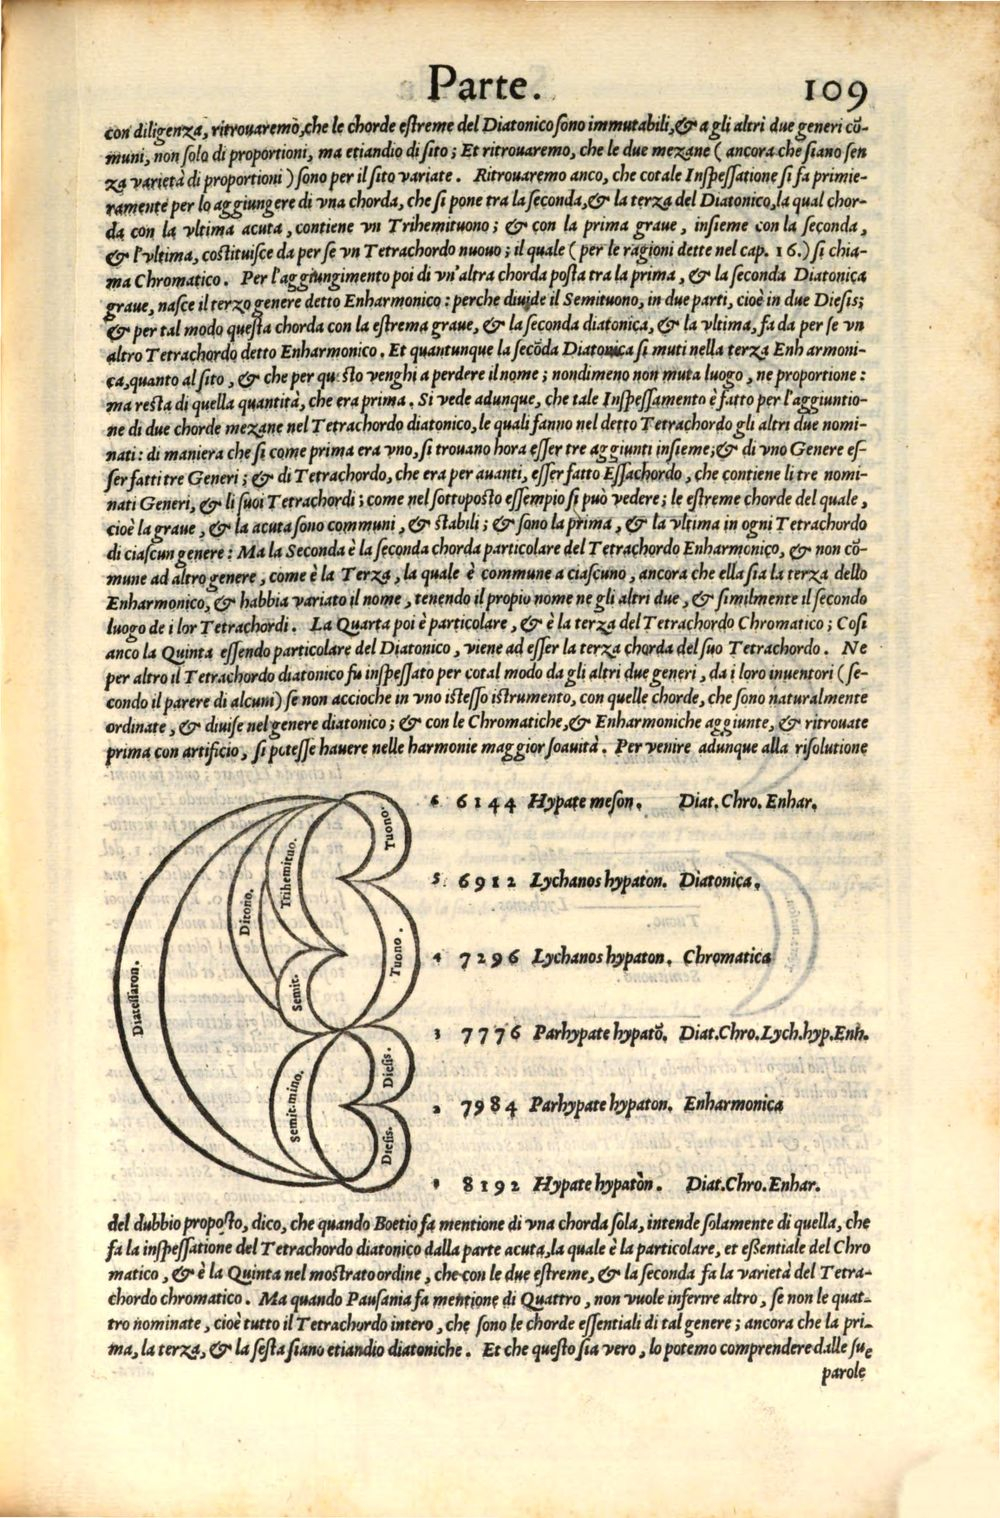 Parte. 109
con diligenza, ritrouaremo, che le chorde estreme del Diatonico sono immutabili, & a gli altri due generi cõ-
muni, non solo di proportioni, ma etiandio di sito; Et ritrouaremo, che le due mezane (ancora che siano sen
za varietà di proportioni) sono per il sito variate. Ritrouaremo anco, che cotale Inspessatione si fa primie-
ramente per lo aggiungere di vna chorda, che si pone tra la seconda, & la terza del Diatonico, la qual chor-
da con la vltima acuta, contiene vn Trihemituono; & con la prima graue, insieme con la seconda,
& l'vltima, costituisce da per se vn Tetrachordo nuouo; il quale (per le ragioni dette nel cap. 16.) si chia-
ma Chromatico. Per l'aggiungimento poi di vn'altra chorda posta tra la prima, & la seconda Diatonica
graue, nasce il terzo genere detto Enharmonico: perche diuide il Semituono, in due parti, cioè in due Diesis;
& per tal modo questa chorda con la estrema graue, & la seconda diatonica, & la vltima, fa da per se vn
altro Tetrachordo detto Enharmonico. Et quantunque la secõda Diatonica si muti nella terza Enharmoni-
ca, quanto al sito, & che per questo venghi a perdere il nome; nondimeno non muta luogo, ne proportione:
ma resta di quella quantità, che era prima. Si vede adunque, che tale Inspessamento è fatto per l'aggiuntio-
ne di due chorde mezane nel Tetrachordo diatonico, le quali fanno nel detto Tetrachordo gli altri due nomi-
nati: di maniera che si come prima era vno, si trouano hora esser tre aggiunti insieme; & di vno Genere es-
ser fatti tre Generi; & di Tetrachordo, che era per auanti, esser fatto Essachordo, che contiene li tre nomi-
nati Generi, & li suoi Tetrachordi; come nel sottoposto essempio si può vedere; le estreme chorde del quale,
cioè la graue, & la acuta sono communi, & stabili; & sono la prima, & la vltima in ogni Tetrachordo
di ciascun genere: Ma la Seconda è la seconda chorda particolare del Tetrachordo Enharmonico, & non cõ-
mune ad altro genere, come è la Terza, la quale è commune a ciascuno, ancora che ella sia la terza dello
Enharmonico, & habbia variato il nome, tenendo il propio nome ne gli altri due, & similmente il secondo
luogo de i lor Tetrachordi. La Quarta poi è particolare, & è la terza del Tetrachordo Chromatico; Cosi
anco la Quinta essendo particolare del Diatonico, viene ad esser la terza chorda del suo Tetrachordo. Ne
per altro il Tetrachordo diatonico fu inspessato per cotal modo da gli altri due generi, da i loro inuentori (se-
condo il parere di alcuni) se non accioche in vno istesso istrumento, con quelle chorde, che sono naturalmente
ordinate, & diuise nel genere diatonico; & con le Chromatiche, & Enharmoniche aggiunte, & ritrouate
prima con artificio, si potesse hauere nelle harmonie maggior soauità. Per venire adunque alla risolutione
6 6144 Hypate meson. Diat. Chro. Enhar.
5. 6912 Lychanos hypaton. Diatonica.
4 7296 Lychanos hypaton. Chromatica
3 7776 Parhypate hypatõ. Diat. Chro. Lych. hyp. Enh.
2 7984 Parhypate hypaton. Enharmonica
8192 Hypate hypaton. Diat. Chro. Enhar.
Diatessaron.
Ditono.
Trihemituo.
Semit.
Tuono.
Tuono.
Semit. mino.
Diesis.
Diesis.
del dubbio proposto, dico, che quando Boetio fa mentione di vna chorda sola, intende solamente di quella, che
fa la inspessatione del Tetrachordo diatonico dalla parte acuta, la quale è la particolare, et essentiale del Chro
matico, & è la Quinta nel mostrato ordine, che con le due estreme, & la seconda fa la varietà del Tetra-
chordo chromatico. Ma quando Pausania fa mentione di Quattro, non vuole inferire altro, se non le quat-
tro nominate, cioè tutto il Tetrachordo intero, che sono le chorde essentiali di tal genere; ancora che la pri-
ma, la terza, & la sesta siano etiandio diatoniche. Et che questo sia vero, lo potemo comprendere dalle sue
parole